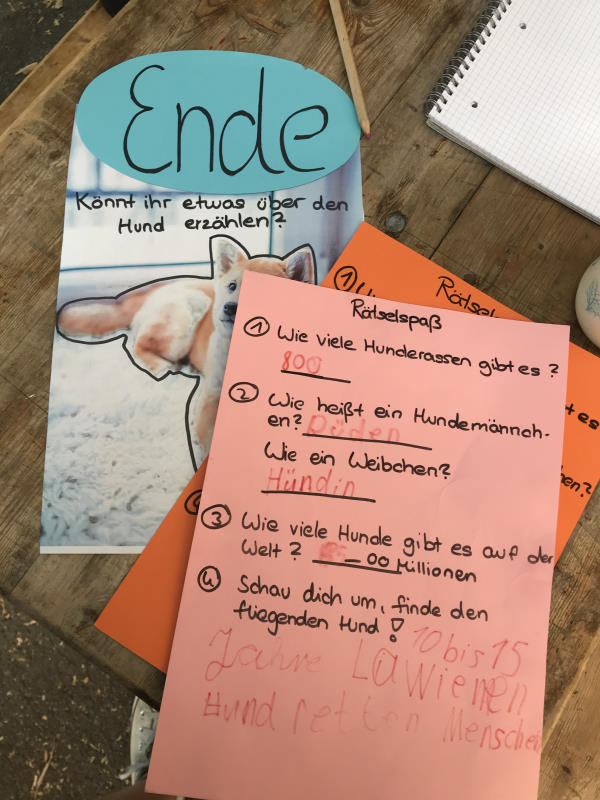 Ende
Könnt ihr etwas über den
Hund erzählen?
① Rätsel
Rätselspaß
① Wie viele Hunderassen gibt es?
800
② Wie heißt ein Hundemännch-
en? Rüden
Wie ein Weibchen?
Hündin
③ Wie viele Hunde gibt es auf der
Welt? 00 Millionen
④ Schau dich um, finde den
fliegenden Hund!
10 bis 15
Jahre Lawienen
Hund retten Menschen